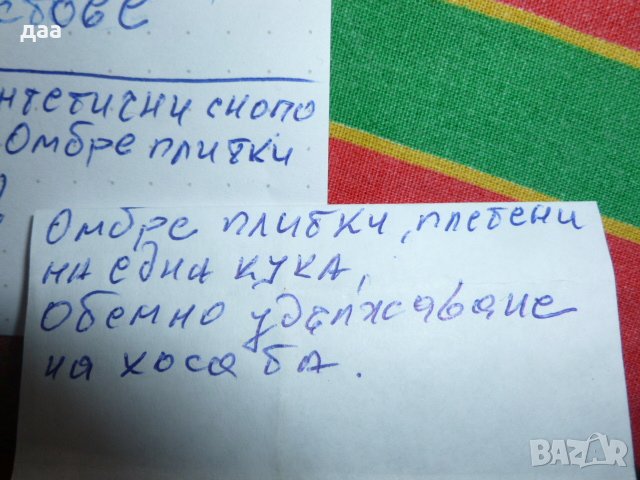 даа
нтетични снопо
Омбре плитки
Омбре плитки, плетени
на една кука,
Обемно удължаване
на хоса ба.
BAZAR